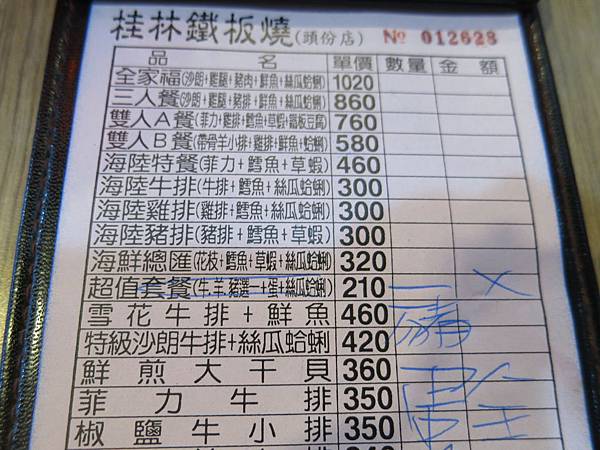 桂林鐵板燒(頭份店) № 012628
品名 單價 數量 金額
全家福(沙朗+雞腿+豬肉+鮮魚+絲瓜蛤蜊) 1020
三人餐(沙朗+雞腿+豬排+鮮魚+絲瓜蛤蜊) 860
雙人A餐(菲力+雞排+鱈魚+草蝦+鐵板豆腐) 760
雙人B餐(帶骨羊小排+雞排+鮮魚+蛤蜊) 580
海陸特餐(菲力+鱈魚+草蝦) 460
海陸牛排(牛排+鱈魚+絲瓜蛤蜊) 300
海陸雞排(雞排+鱈魚+絲瓜蛤蜊) 300
海陸豬排(豬排+鱈魚+草蝦) 300
海鮮總匯(花枝+鱈魚+草蝦+絲瓜蛤蜊) 320
超值套餐(牛.羊.豬選一+蛋+絲瓜蛤蜊) 210
雪花牛排+鮮魚 460
特級沙朗牛排+絲瓜蛤蜊 420
鮮煎大干貝 360
菲力牛排 350
椒鹽牛小排 350